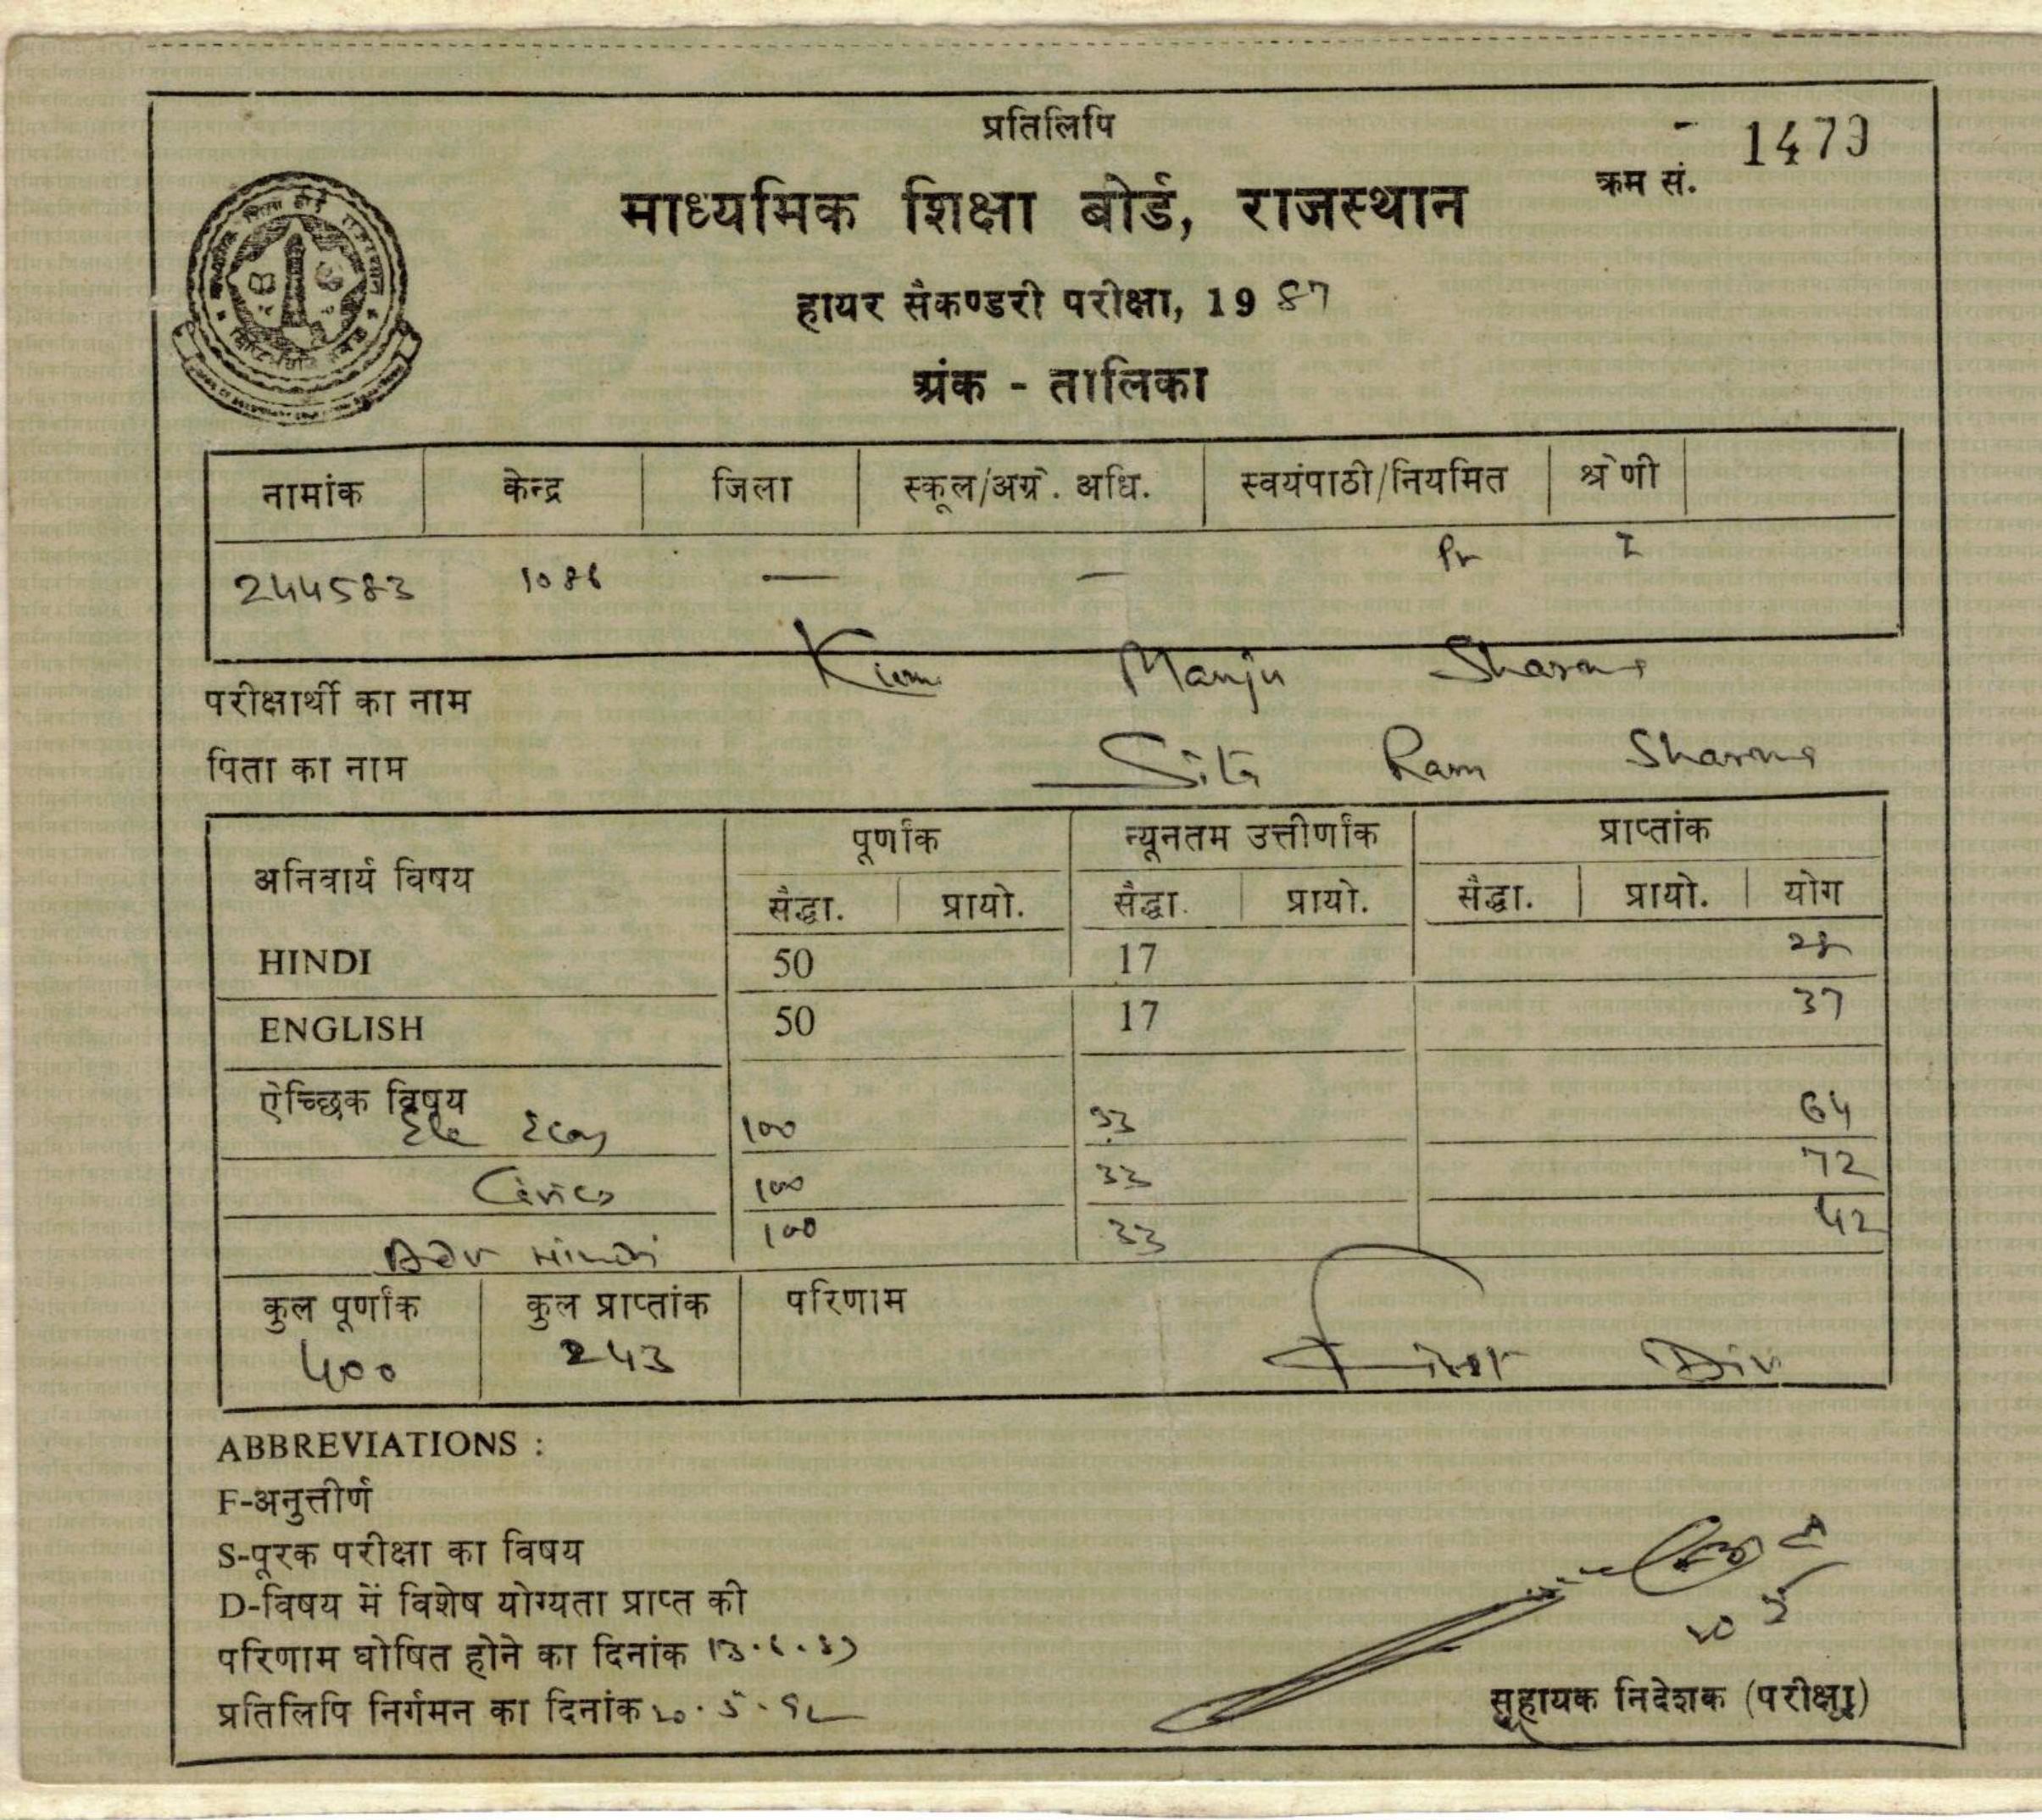 प्रतिलिपि
क्रम सं. 1479
माध्यमिक शिक्षा बोर्ड, राजस्थान
हायर सैकण्डरी परीक्षा, 1987
अंक - तालिका
नामांक केन्द्र जिला स्कूल/अग्रे. अधि. स्वयंपाठी/नियमित श्रेणी
244583 1086 — — Pr I
परीक्षार्थी का नाम Kum Manju Sharma
पिता का नाम Sita Ram Sharma
अनिवार्य विषय पूर्णांक न्यूनतम उत्तीर्णांक प्राप्तांक
सैद्धा. प्रायो. सैद्धा. प्रायो. सैद्धा. प्रायो. योग
HINDI 50 17 28
ENGLISH 50 17 37
ऐच्छिक विषय
Ele Eco 100 33 64
Civics 100 33 72
Adv Hindi 100 33 42
कुल पूर्णांक कुल प्राप्तांक परिणाम
400 243 First Div
ABBREVIATIONS :
F-अनुत्तीर्ण
S-पूरक परीक्षा का विषय
D-विषय में विशेष योग्यता प्राप्त की
परिणाम घोषित होने का दिनांक 13.6.87
प्रतिलिपि निर्गमन का दिनांक 20.5.92
सहायक निदेशक (परीक्षा)